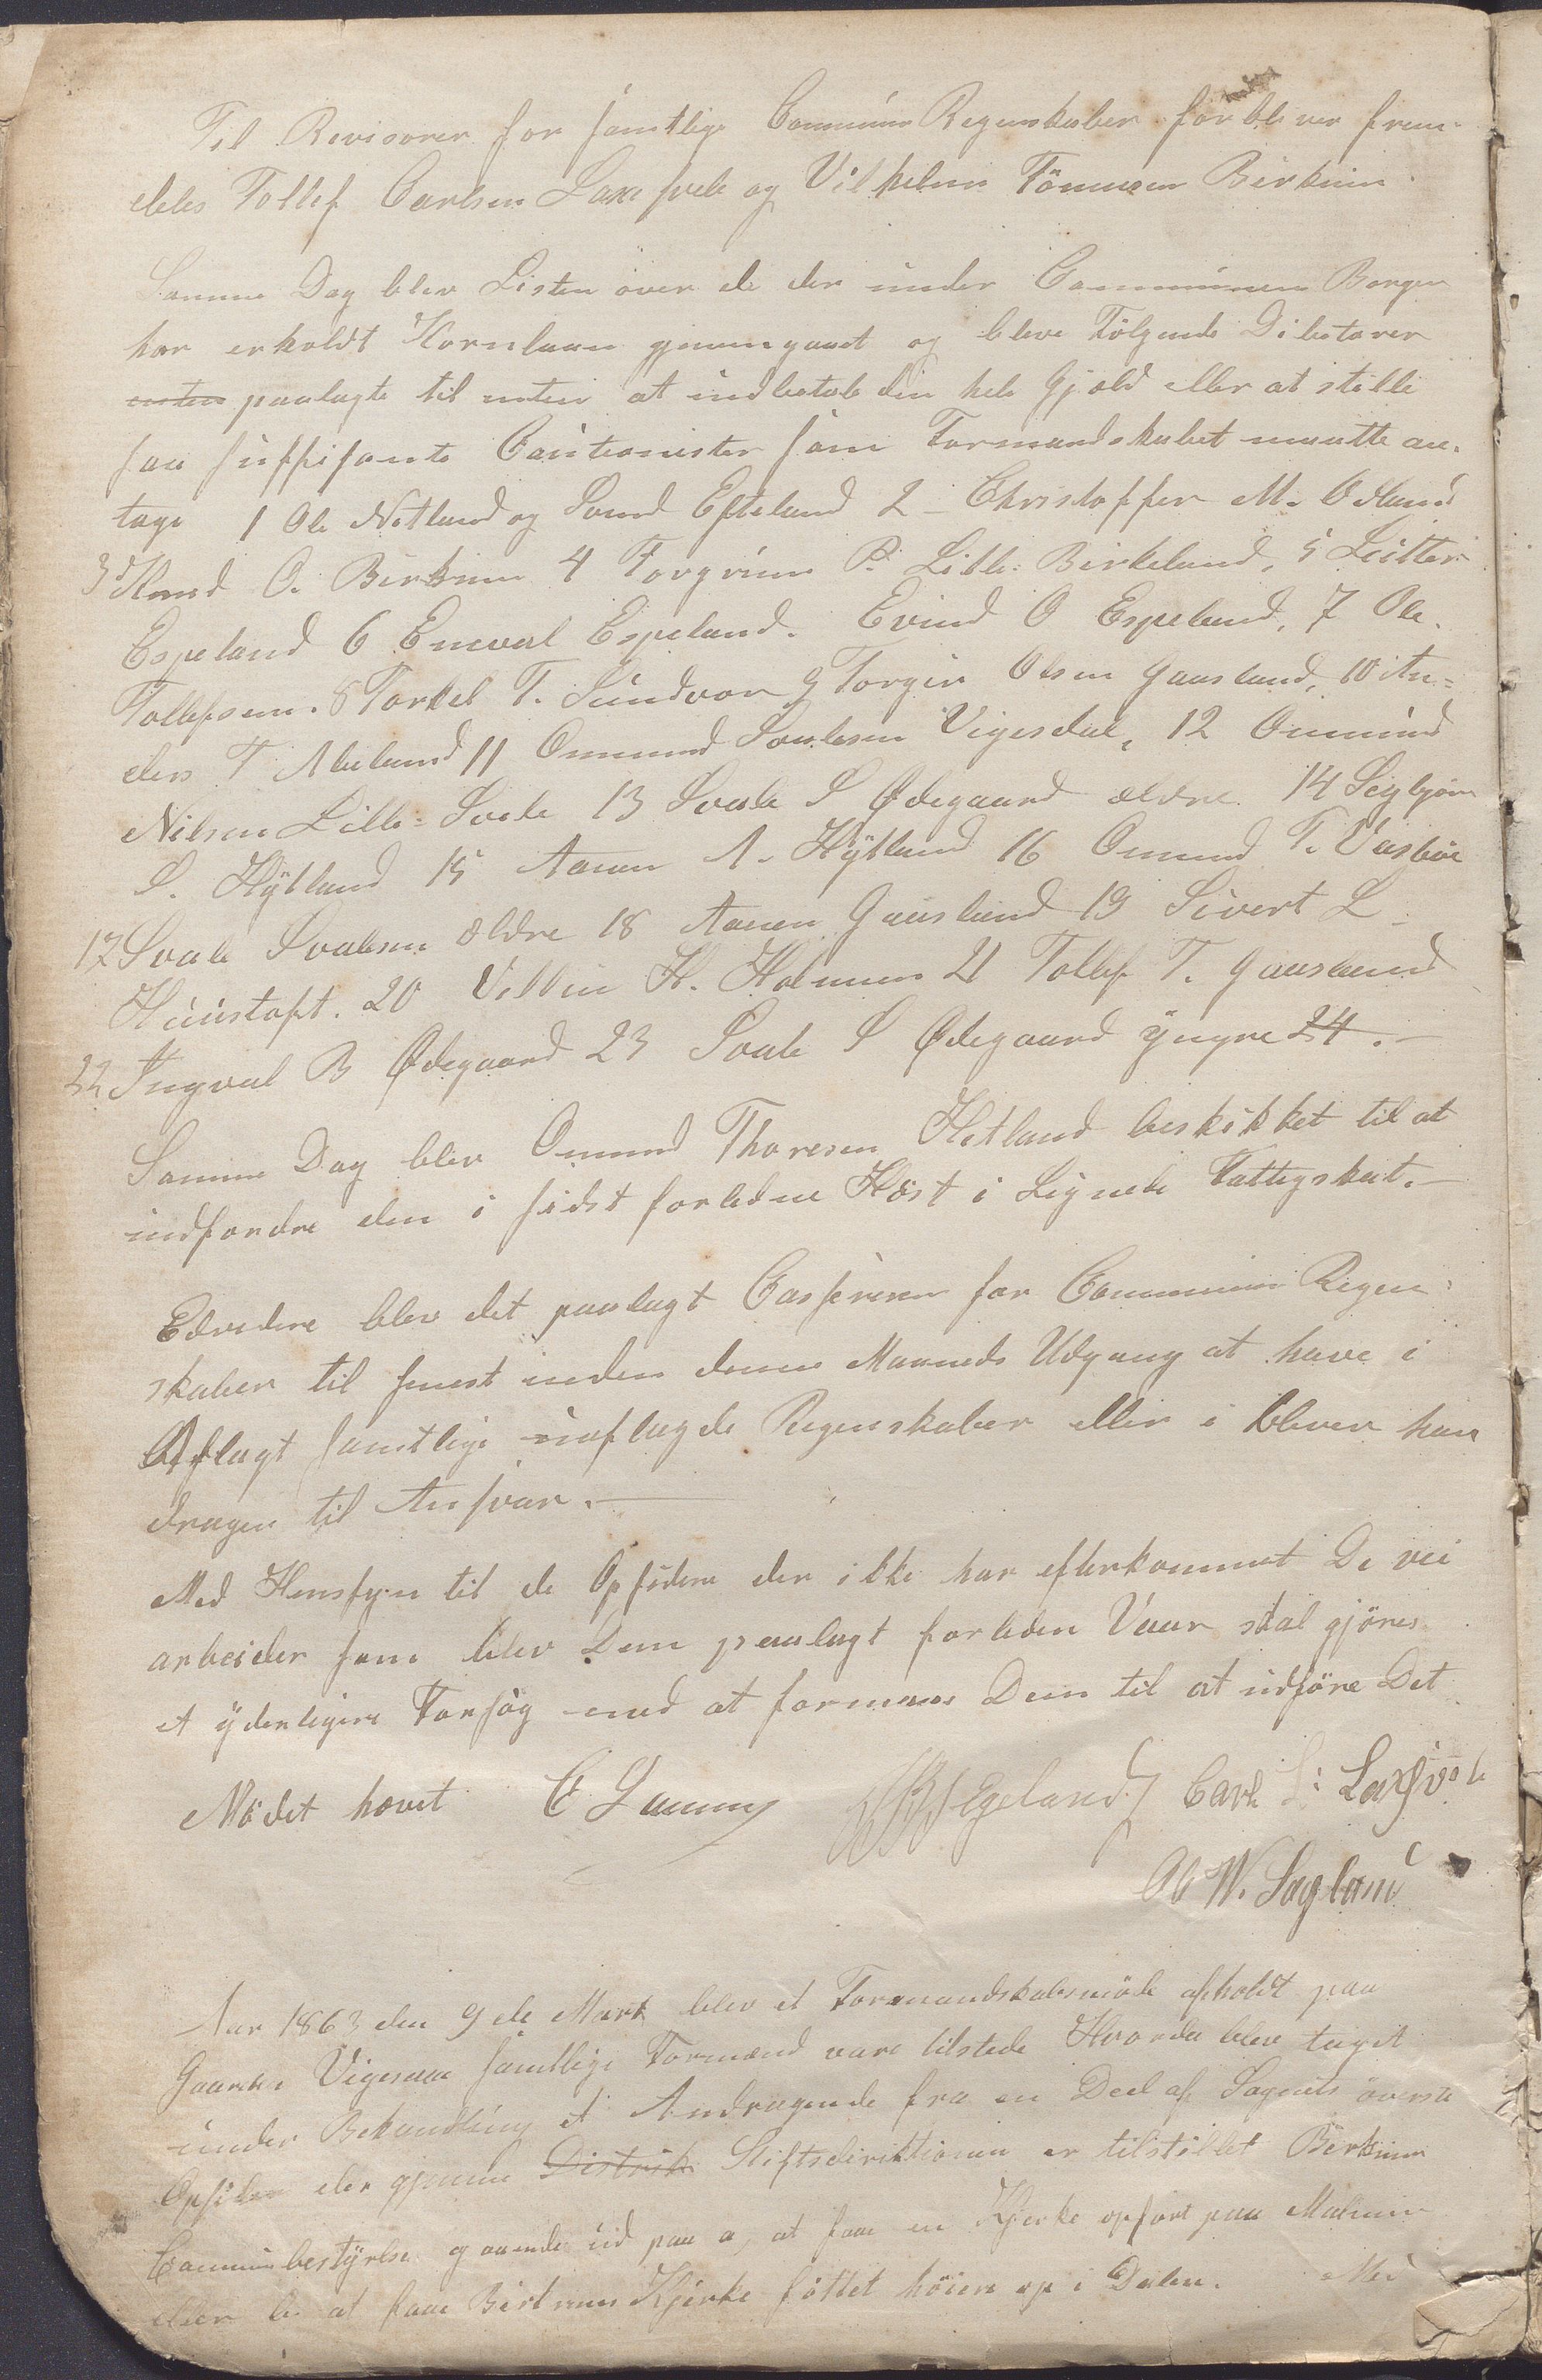 Til Revisorer for samtlige Commune Regnskaber forbliver frem-
deles Tollef Carlsen Laxesvele og Vilhelm Tönnesen Birkrim.
Samme Dag blev Listen over de der under Communens Borgen
har erholdt Kornlaan gjennemgaaet og bleve Fölgende Dibetorer
enten paalagte til enten at indbetale din hele Gjæld eller at stille
saa suffisante Cautionister som Formandskabet maatte an-
tage 1 Ole Netland og Svend Efteland 2 - Christoffer M. Ødland
3 Knud O. Birkrim 4 Torgrim P. Lille-Birkeland, 5
Espeland 6 Eneval Espeland. Evind O Espeland, 7 Ole
Tollefsen. 8 Torkel T. Sundvor 9 Torger Olsen Gausland, 10 An-
ders T Aveland 11 Ommund Svalesen Vigesdal, 12 Ommund
Nilsen Lille-Svele 13 Svale S Ødegaard ældre 14 Seigbjørn
S. Hÿtland 15 Aanen A. Hÿtland 16 Ommund T. Vasbøe
17 Svale Svalesen ældre 18 Aanen Gausland 19 Sivert L
Hunstoft. 20 Villum H. Holmen 21 Tollef T. Gausland
22 Ingval B Ødegaard 23 Svale S Ødegaard ÿngre 24.-
Samme Dag blev Ommund Thoresen Hetland beskikket til at
indfordre den i sidst forledne Høst i Lignede Fattigskat.-
Edvidere blev det paalagt Cassereren for Commune Regen-
skaber til senest inden denne Maaneds Udgang at have i
Aflagt samtlige uaflagde Regenskaber eller i bliver han
dragen til Ansvar.
Med Hensyn til de Opsidere der ikke har efterkommet De vei
arbeider som blev Dem paalagt forleden Vaar skal gjöres
et ÿderligere Forsög med at formaa Dem til at udföre Det
Mödet hævet Egeland Carl S: Laxesvele
Ole W. Sagland
Aar 1863 den 9de Mart blev et Formandskabsmöde afholdt paa
Gaarden Vigesaa samtlige Formænd vare tilstede Hvorda blev taget
under Behandling et Andragende fra en Deel af Sognets överste
Opsidere der gjennem Distrik Stiftsdirektionen er tilstillet Birkrim
Communbestÿrelse gaaende ud paa a, at faae en Kjerke opfört paa Malmin
eller b. at faae Birkrims Kjerke fottet höiere op i Dalen. Med